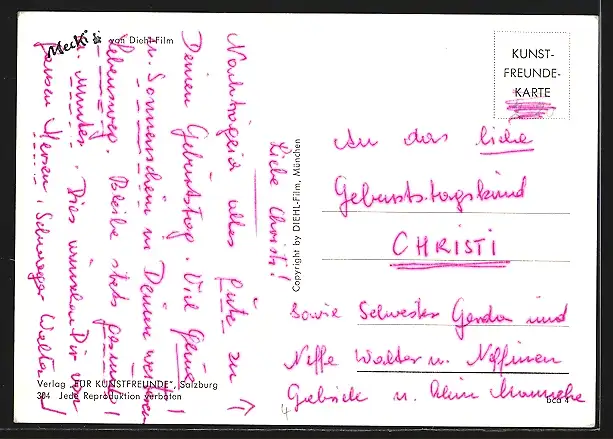 Mecki von Diehl-Film
Liebe Christi!
Nachträglich alles Gute zu
Deinem Geburtstag. Viel Glück
u. Sonnenschein in Deinem weiteren
Lebensweg. Bleibe stets gesund!
u. munter. Dies wünschen Dir von
ganzem Herzen, Schwager Walter
Verlag „FÜR KUNSTFREUNDE", Salzburg
304 Jede Reproduktion verboten
Copyright by DIEHL-Film, München
KUNST-
FREUNDE-
KARTE
An das liebe
Geburtstagskind
CHRISTI
sowie Schwester Gerda und
Neffe Walter u. Neffinen
Gabriele u.
4
bcd 4